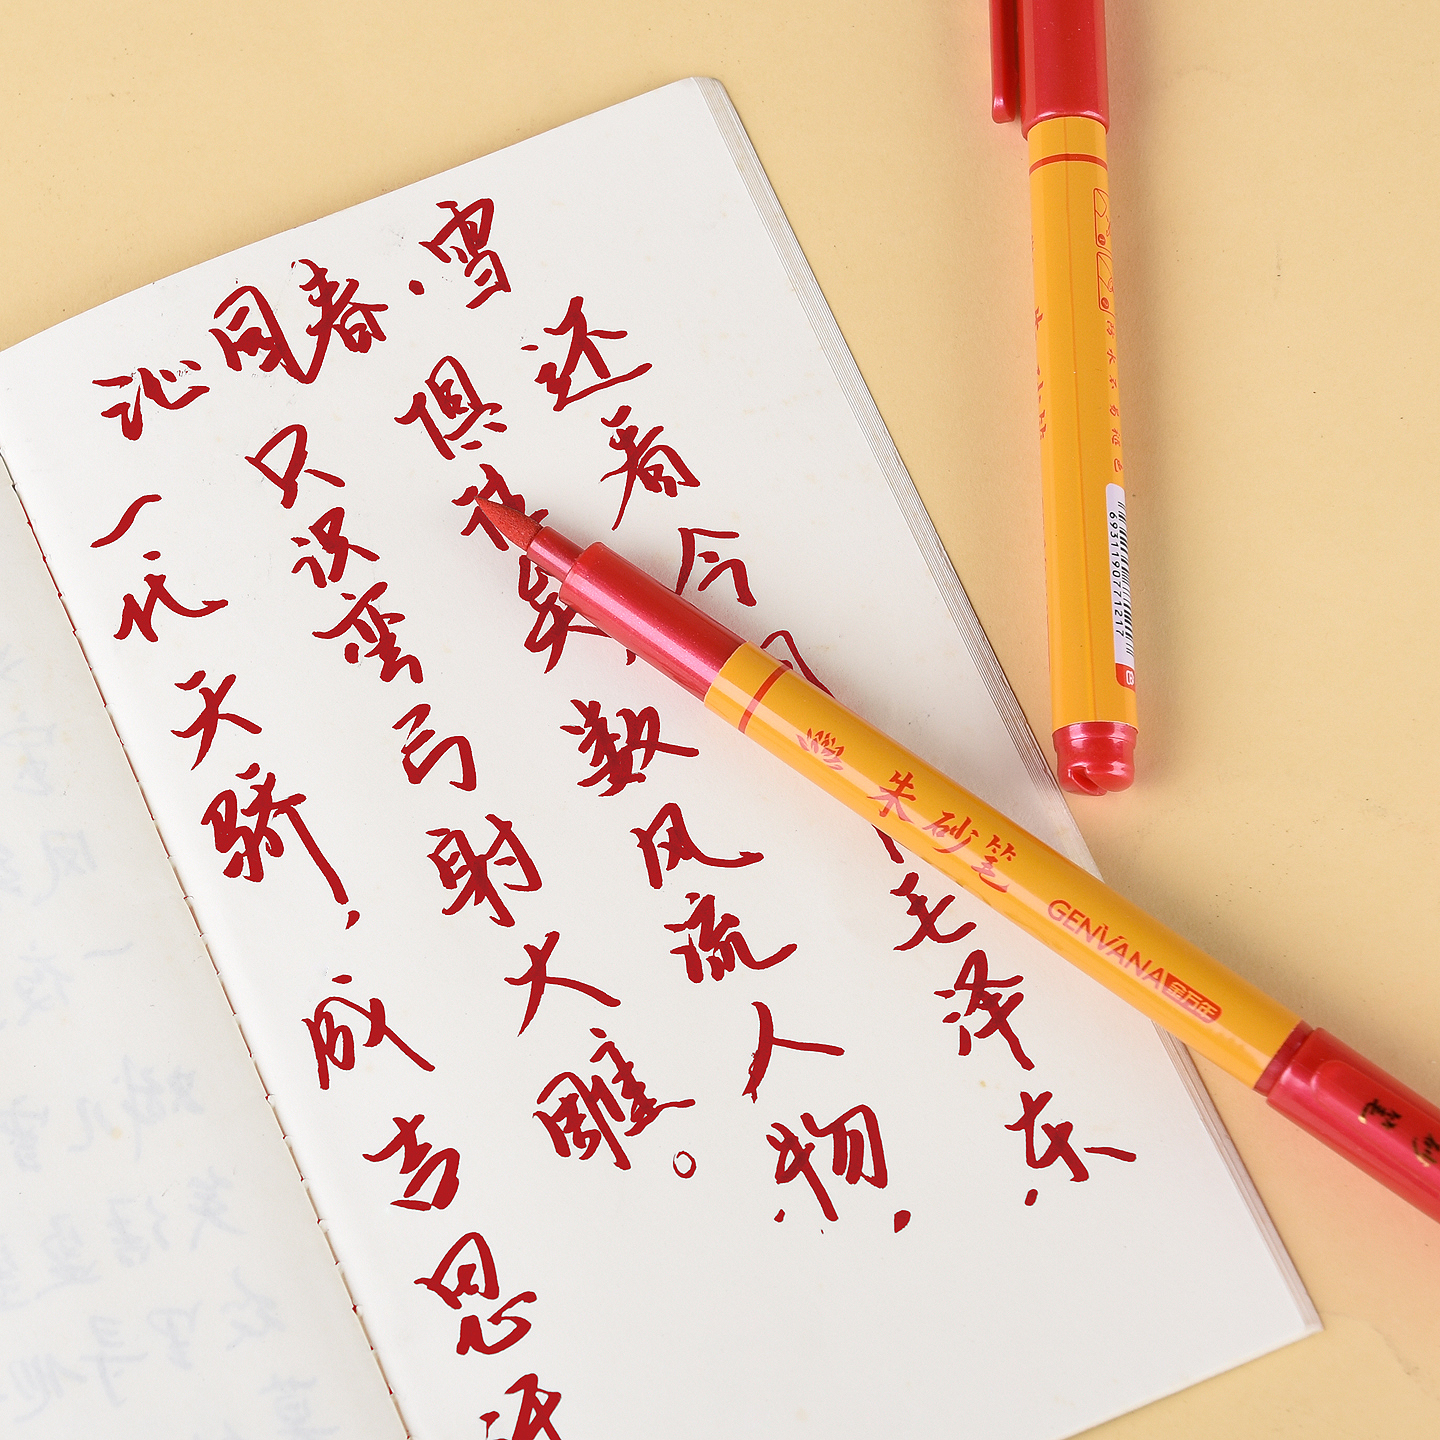 沁园春·雪
一代天骄，成吉思汗
只识弯弓射大雕。
俱往矣，数风流人物，
还看今
毛泽东
朱砂笔
GENVANA 金万年
防水不易褪色
6931190771217